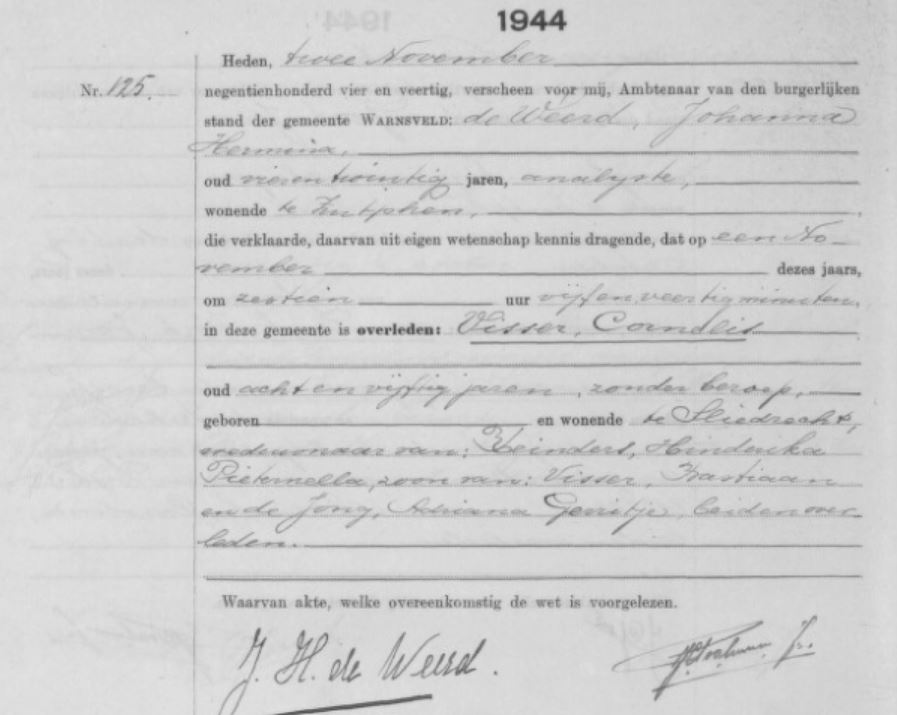 1944
Heden, twee November
Nr. 125. negentienhonderd vier en veertig, verscheen voor mij, Ambtenaar van den burgerlijken
stand der gemeente WARNSVELD: de Weerd, Johanna
Hermina,
oud vierentwintig jaren, analyste,
wonende te Zutphen,
die verklaarde, daarvan uit eigen wetenschap kennis dragende, dat op een No-
vember dezes jaars,
om zestien uur vijfenveertig minuten,
in deze gemeente is overleden: Visser, Cornelis
oud acht en vijftig jaren, zonder beroep,
geboren en wonende te Sliedrecht,
weduwnaar van: Reinders, Hinderika
Pieternella, zoon van: Visser, Bastiaan
en de Jong, Adriana Gerritje, beiden over-
leden.
Waarvan akte, welke overeenkomstig de wet is voorgelezen.
J. H. de Weerd.